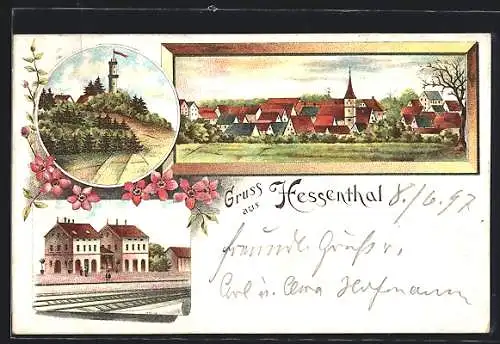 Gruss
aus
Hessenthal 8./6.97.
freundl. Grüße v.
Carl u. Clara Hofmann